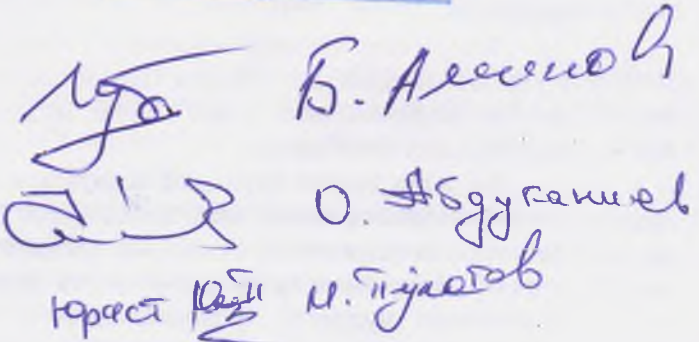 Б. Аминов
О. Абдуганиев
юрист М. Пулатов